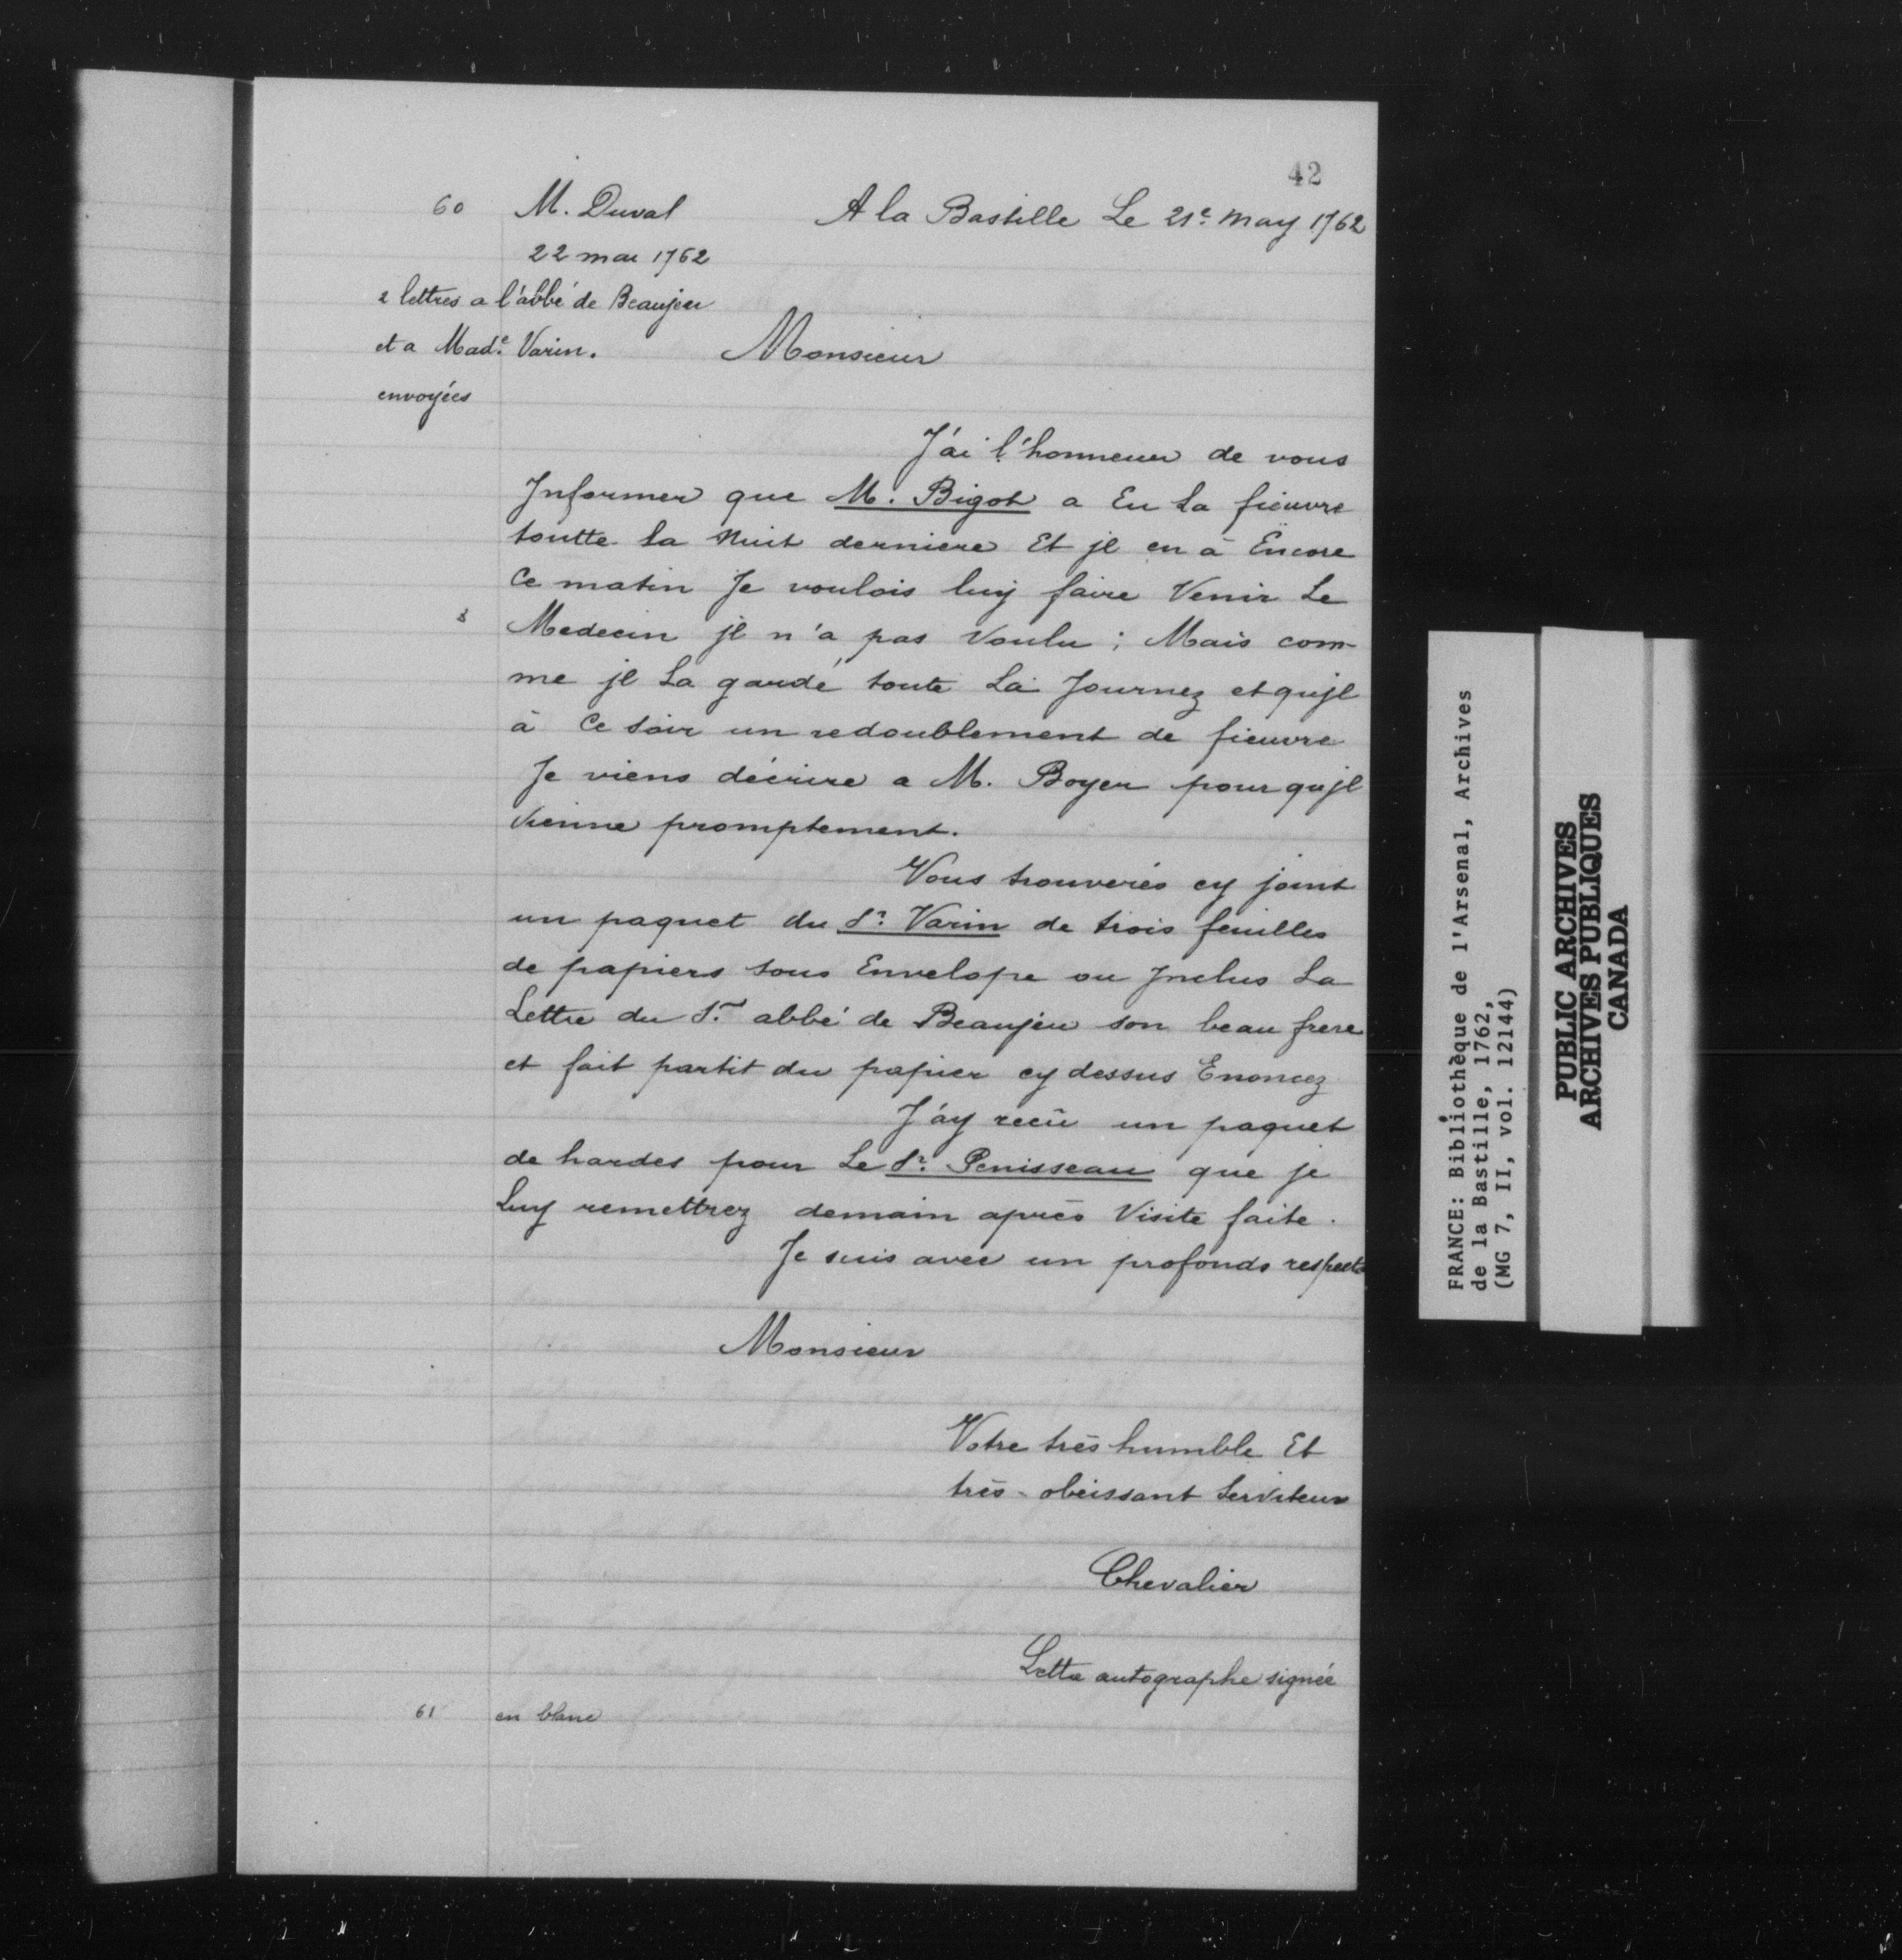 42
60 M. Duval A la Bastille Le 21e. may 1762
22 mai 1762
2 lettres a l'abbé de Beaujeu
et a Made. Varin. Monsieur
envoyées
J'ai l'honneur de vous
Informer que M. Bigot a Eu La fieuvre
toutte La Nuit derniere Et jl en à Encore
Ce matin Je voulois luy faire Venir Le
Medecin jl n'a pas Voulu ; Mais com-
me jl La gardé toute La Journez et qujl
à Ce soir un redoublement de fieuvre
Je viens décrire a M. Boyer pour qujl
Vienne promptement.
Vous trouverés cy joint
un paquet du Sr. Varin de trois feuilles
de papiers sous Envelope ou Jnclus La
Lettre du Sr. abbé de Beaujeu son beau frere
et fait partit du papier cy dessus Enoncez
J'ay recü un paquet
de hardes pour Le Sr. Penisseau que je
Luy remettrez demain après Visite faite.
Je suis avec un profonds respect
Monsieur
Votre très humble Et
très-obéissant Serviteur
Chevalier
Lettre autographe signée
61 en blanc
FRANCE: Bibliothèque de l'Arsenal, Archives
de la Bastille, 1762,
(MG 7, II, vol. 12144)
PUBLIC ARCHIVES
ARCHIVES PUBLIQUES
CANADA